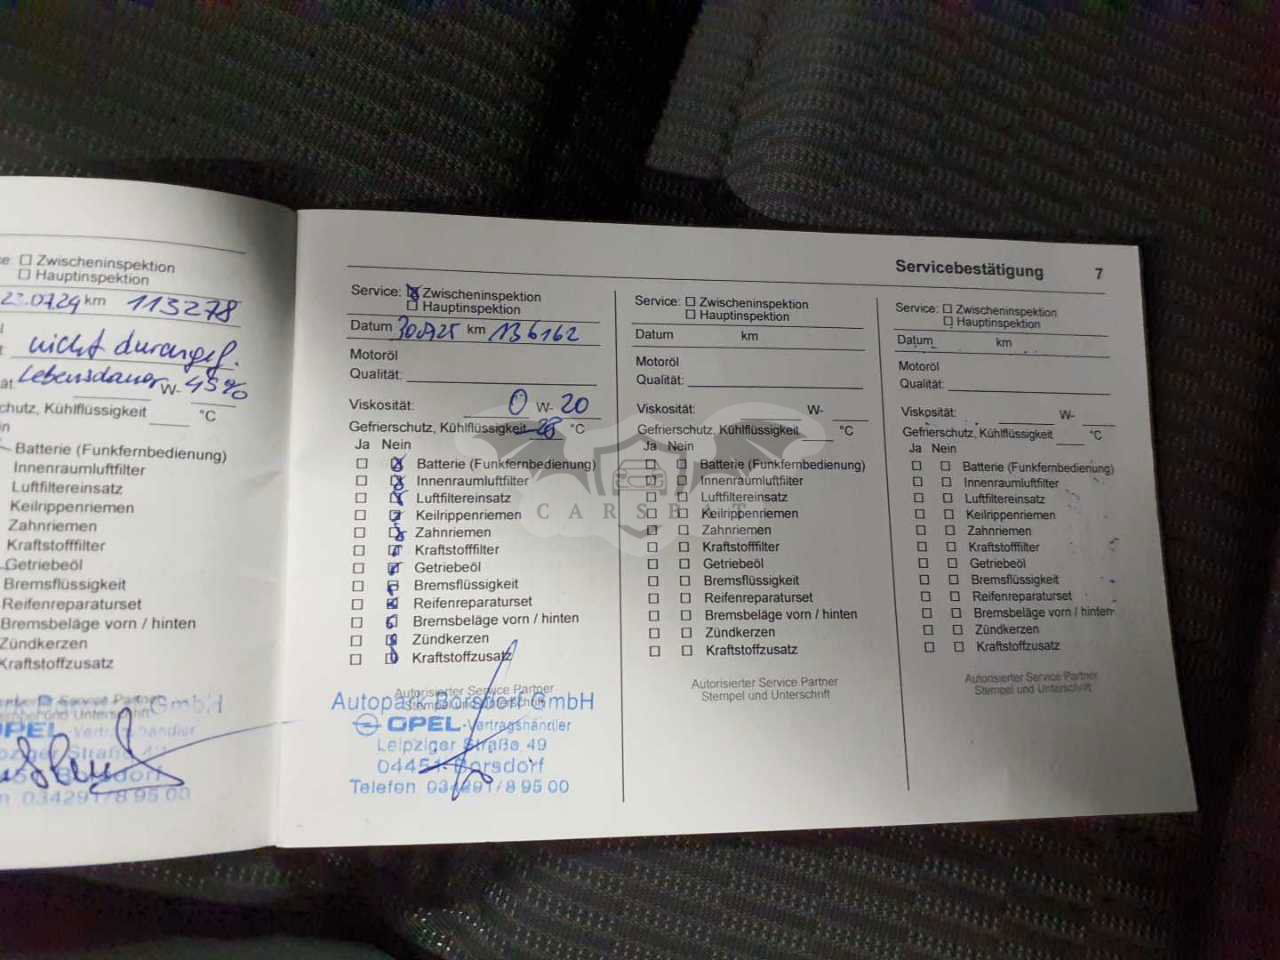 Servicebestätigung 7
Zwischeninspektion
Hauptinspektion
km 113278
nicht durchgef.
Lebensdauer W- 45%
Kühlflüssigkeit °C
Batterie (Funkfernbedienung)
Innenraumluftfilter
Luftfiltereinsatz
Keilrippenriemen
Zahnriemen
Kraftstofffilter
Getriebeöl
Bremsflüssigkeit
Reifenreparaturset
Bremsbeläge vorn / hinten
Zündkerzen
Kraftstoffzusatz
Service: Zwischeninspektion
Hauptinspektion
Datum 30.07.25 km 136162
Motoröl
Qualität:
Viskosität: 0 W- 20
Gefrierschutz, Kühlflüssigkeit -28 °C
Ja Nein
Batterie (Funkfernbedienung)
Innenraumluftfilter
Luftfiltereinsatz
Keilrippenriemen
Zahnriemen
Kraftstofffilter
Getriebeöl
Bremsflüssigkeit
Reifenreparaturset
Bremsbeläge vorn / hinten
Zündkerzen
Kraftstoffzusatz
Autorisierter Service Partner
Stempel und Unterschrift
Autopark Borsdorf GmbH
OPEL-Vertragshändler
Leipziger Straße 49
04451 Borsdorf
Telefon 034291/8 95 00
Service: Zwischeninspektion
Hauptinspektion
Datum km
Motoröl
Qualität:
Viskosität: W-
Gefrierschutz, Kühlflüssigkeit °C
Ja Nein
Batterie (Funkfernbedienung)
Innenraumluftfilter
Luftfiltereinsatz
Keilrippenriemen
Zahnriemen
Kraftstofffilter
Getriebeöl
Bremsflüssigkeit
Reifenreparaturset
Bremsbeläge vorn / hinten
Zündkerzen
Kraftstoffzusatz
Autorisierter Service Partner
Stempel und Unterschrift
Service: Zwischeninspektion
Hauptinspektion
Datum km
Motoröl
Qualität:
Viskosität: W-
Gefrierschutz, Kühlflüssigkeit °C
Ja Nein
Batterie (Funkfernbedienung)
Innenraumluftfilter
Luftfiltereinsatz
Keilrippenriemen
Zahnriemen
Kraftstofffilter
Getriebeöl
Bremsflüssigkeit
Reifenreparaturset
Bremsbeläge vorn / hinten
Zündkerzen
Kraftstoffzusatz
Autorisierter Service Partner
Stempel und Unterschrift
CARSBAT